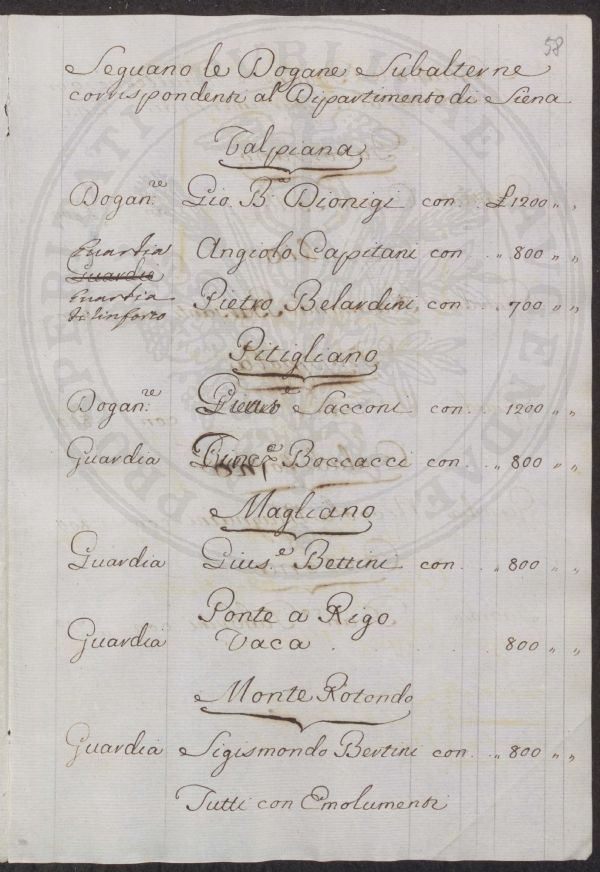 58
Seguano le Dogane Subalterne
corrispondenti al Dipartimento di Siena
Talpiana
Dogan.re Gio. B.a Dionigi con £ 1200 " "
Guardia
Guardie Angiolo Capitani con " 800 " "
Guardia
di Rinforzo Pietro Belardini con 700 " "
Pitigliano
Dogan.re Giuse Sacconi con 1200 " "
Guardia Boccacci con " 800 " "
Magliano
Guardia Gius.e Bettini con " 800 " "
Ponte a Rigo
Guardia Vaca 800 " "
Monte Rotondo
Guardia Sigismondo Bertini con " 800 " "
Tutti con Emolumenti